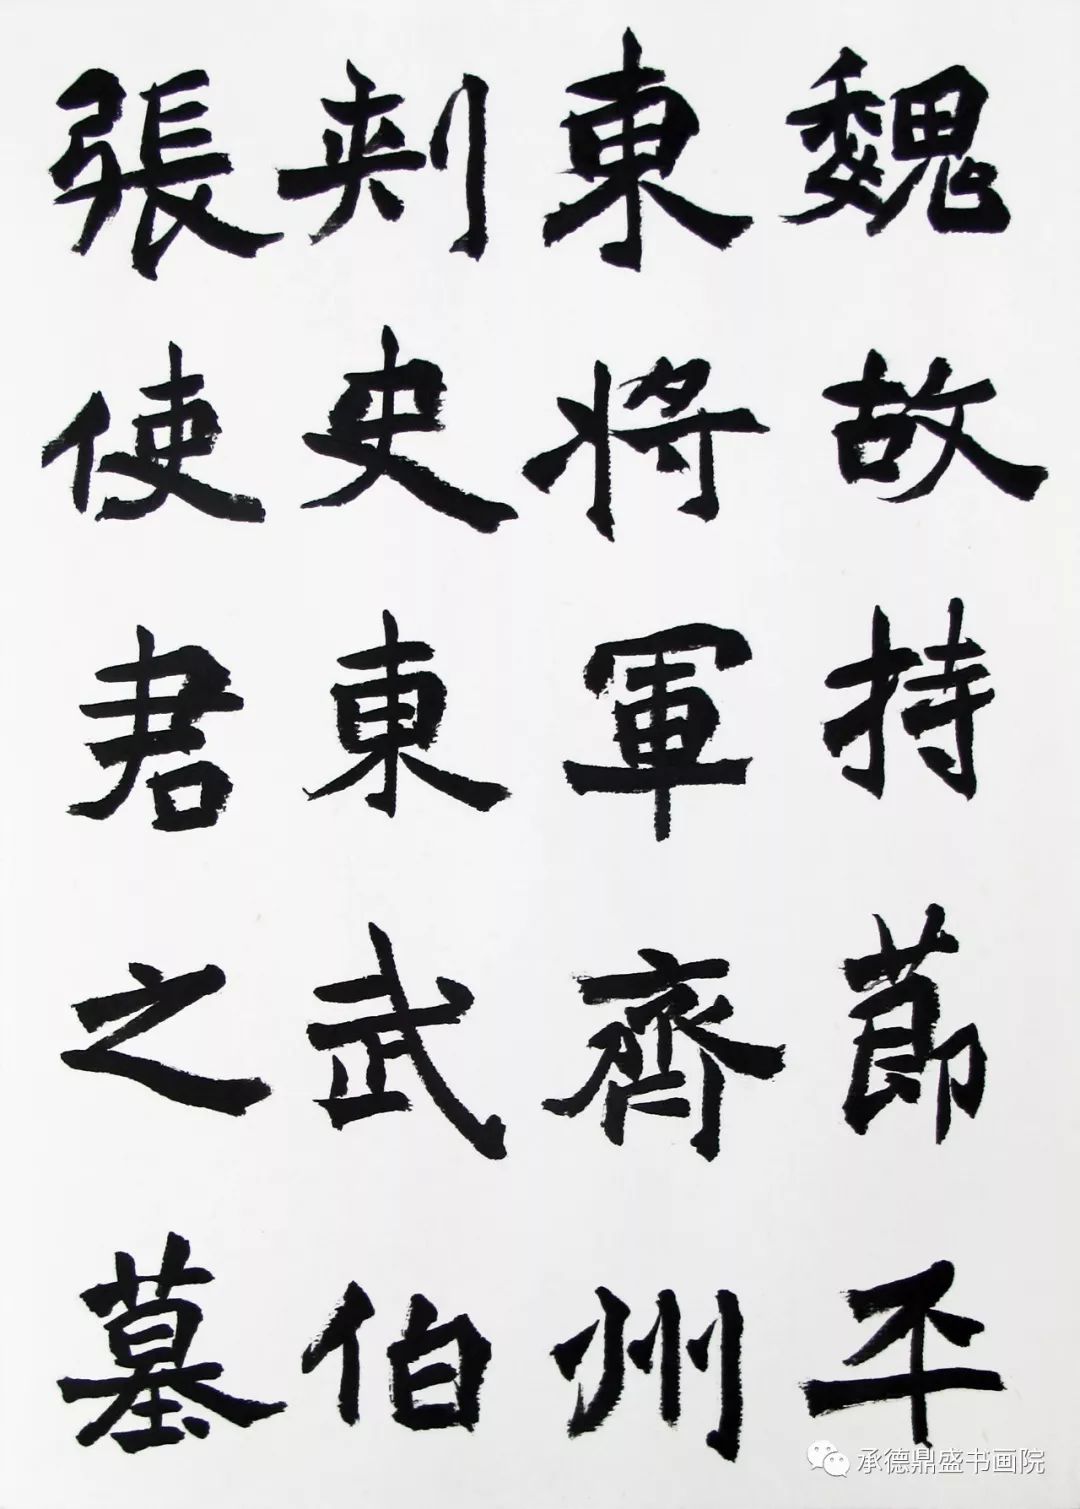 魏故持節平
東將軍齊州
刾史東武伯
張使君之墓
承德鼎盛书画院